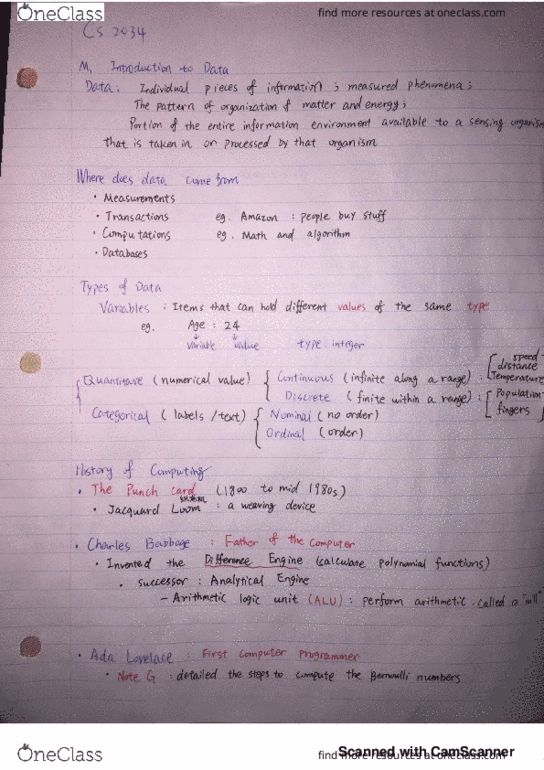 OneClass
find more resources at oneclass.com
CS 2034
M, Introduction to Data
Data : Individual pieces of information ; measured phenomena ;
The pattern of organization of matter and energy ;
Portion of the entire information environment available to a sensing organism
that is taken in or processed by that organism
Where does data come from
• Measurements
• Transactions eg. Amazon : people buy stuff
• Computations eg. Math and algorithm
• Databases
Types of Data
Variables : Items that can hold different values of the same type
eg. Age : 24
variable value type : integer
Quantitave (numerical value) { Continuous (infinite along a range) : [ speed distance Temperature
Discrete (finite within a range) : [ Population fingers ]
Categorical (labels / text) { Nominal (no order)
Ordinal (order)
History of Computing
• The Punch card (1800 to mid 1980s)
• Jacquard Loom : a weaving device
• Charles Babbage : Father of the Computer
• Invented the Difference Engine (calculate polynomial functions)
• successor : Analytical Engine
- Arithmetic logic unit (ALU) : perform arithmetic called a "mill"
• Ada Lovelace : First Computer Programmer
• Note G : detailed the steps to compute the Bernoulli numbers
OneClass
find more resources at oneclass.com
Scanned with CamScanner